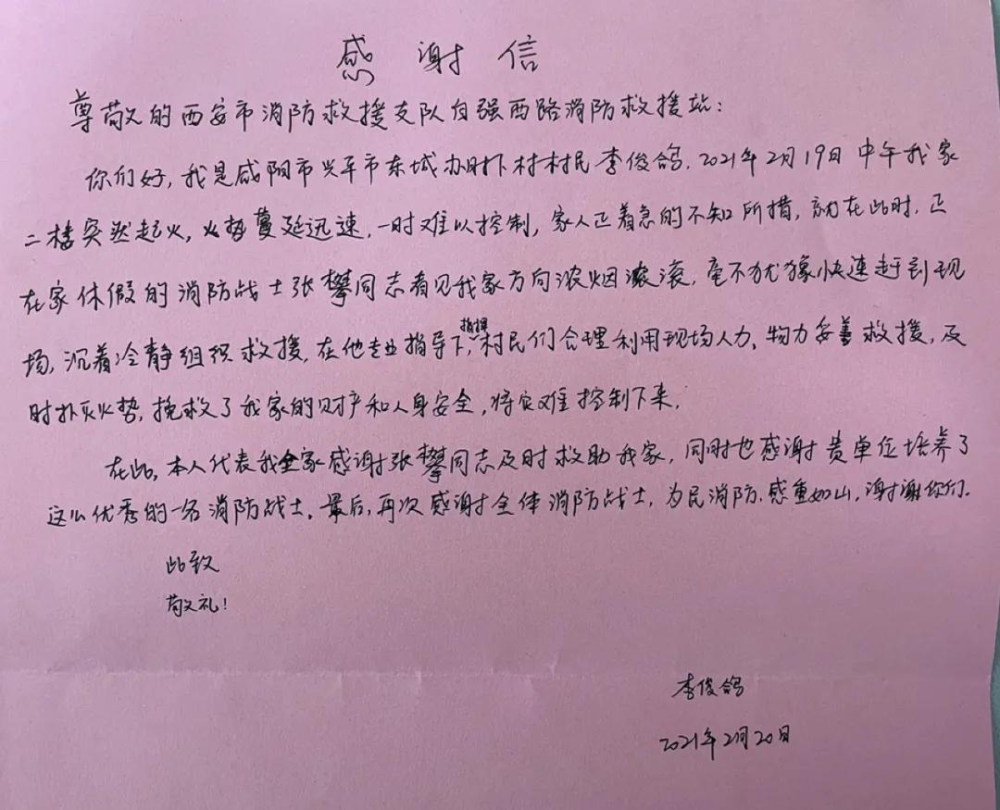 感谢信
尊敬的西安市消防救援支队自强西路消防救援站：
你们好，我是咸阳市兴平市东城办时卜村村民李俊鸽，2021年2月19日中午我家
二楼突然起火，火势蔓延迅速，一时难以控制，家人正着急的不知所措，就在此时，正
在家休假的消防战士张攀同志看见我家方向浓烟滚滚，毫不犹豫快速赶到现
场，沉着冷静组织救援，在他专业指导下，指挥村民们合理利用现场人力、物力妥善救援，及
时扑灭火势，挽救了我家的财产和人身安全，将灾难控制下来。
在此，本人代表我全家感谢张攀同志及时救助我家，同时也感谢贵单位培养了
这么优秀的一名消防战士。最后，再次感谢全体消防战士，为民消防，感重如山，谢谢你们。
此致
敬礼！
李俊鸽
2021年2月20日